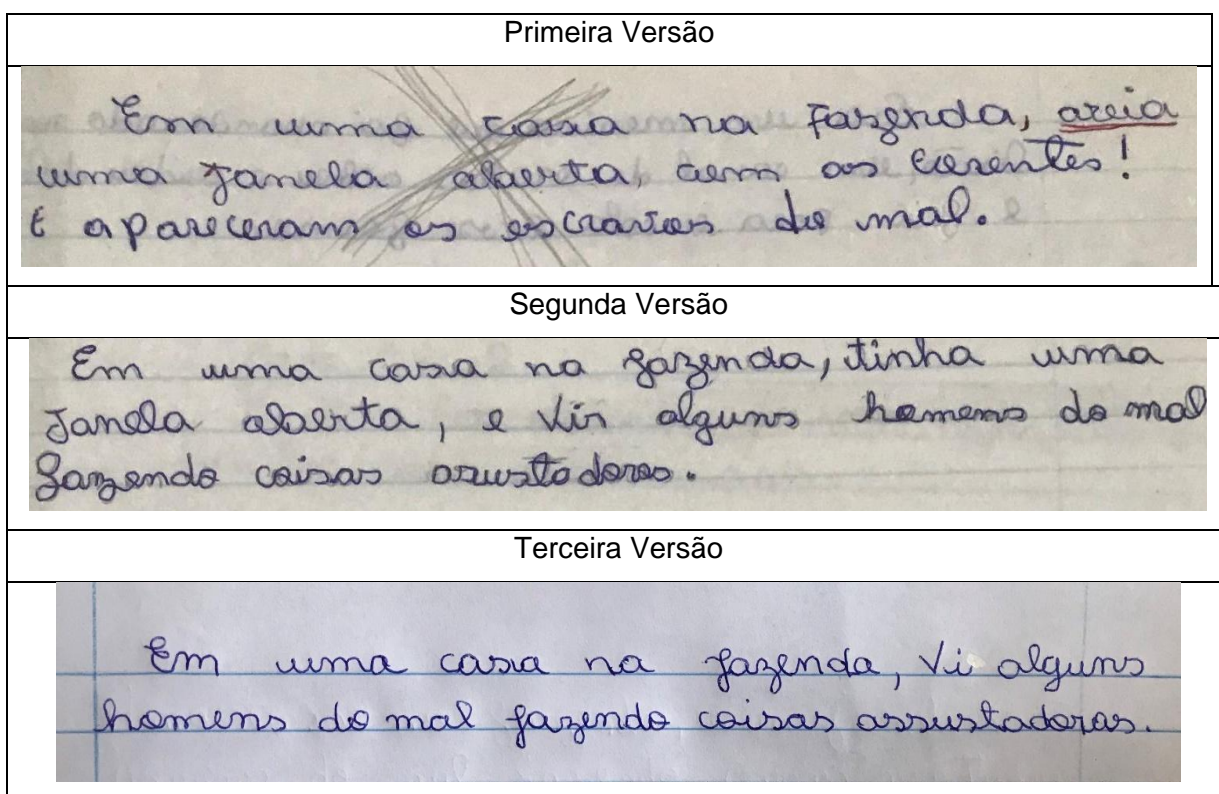 Primeira Versão
Em uma casa na Fazenda, areia
uma Janela aberta, com as corentes!
E apareceram os escravos do mal.
Segunda Versão
Em uma casa na fazenda, tinha uma
Janela aberta, e vir alguns homens do mal
fazendo coisas asustadoras.
Terceira Versão
Em uma casa na fazenda, Vi alguns
homens do mal fazendo coisas assustadoras.